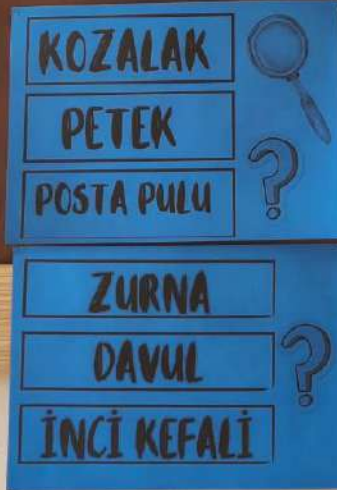 KOZALAK
PETEK
POSTA PULU
?
ZURNA
DAVUL
İNCİ KEFALİ
?